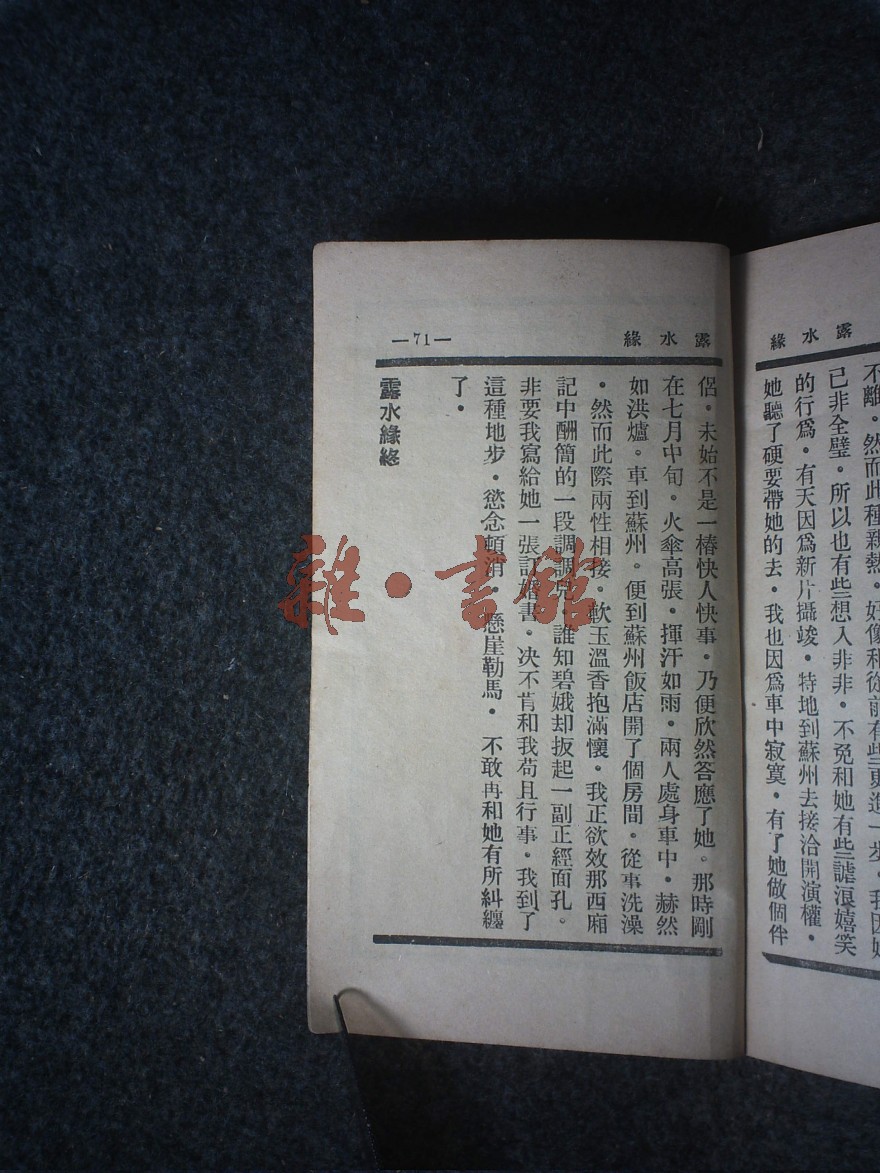 露水緣
不離。然而此種親熱。好像和從前有些更進一步。我因她
已非全璧。所以也有些想入非非。不免和她有些謔浪嬉笑
的行爲。有天因爲新片攝竣。特地到蘇州去接洽開演權。
她聽了硬要帶她的去。我也因爲車中寂寞。有了她做個伴
露水緣
—71—
侶。未始不是一樁快人快事。乃便欣然答應了她。那時剛
在七月中旬。火傘高張。揮汗如雨。兩人處身車中。赫然
如洪爐。車到蘇州。便到蘇州飯店開了個房間。從事洗澡
。然而此際兩性相接。軟玉溫香抱滿懷。我正欲效那西廂
記中酬簡的一段調調兒。誰知碧娥却扳起一副正經面孔。
非要我寫給她一張訂婚書。决不肯和我苟且行事。我到了
這種地步。慾念頓消。懸崖勒馬。不敢再和她有所糾纏
了。
露水緣終
雜·書館